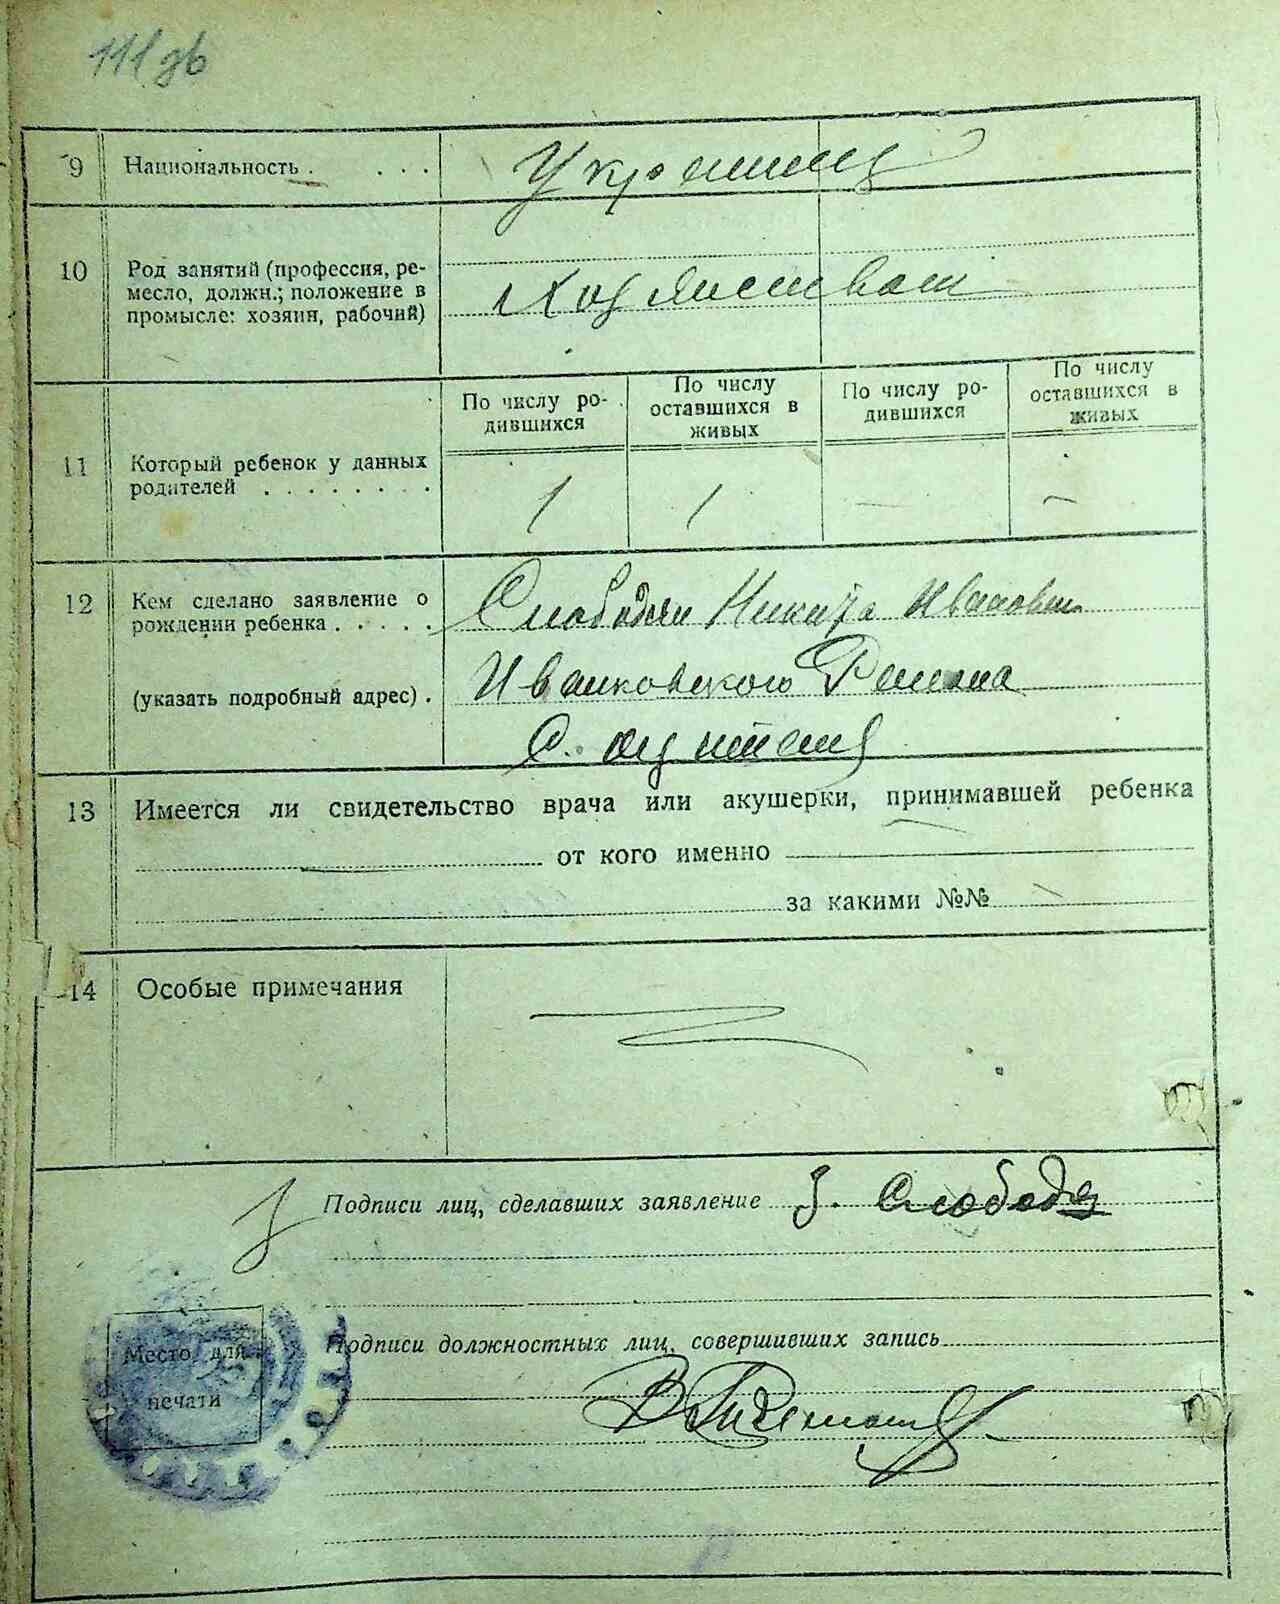 111
9 Национальность . . . .
Украинец
10 Род занятий (профессия, ре-
месло, должн.; положение в
промысле: хозяин, рабочий)
По числу ро-
дившихся
По числу
оставшихся в
живых
По числу ро-
дившихся
По числу
оставшихся в
живых
11 Который ребенок у данных
родителей . . . . . . . .
1 1 — —
12 Кем сделано заявление о
рождении ребенка . . . . .
Слободян Никита Иванович
(указать подробный адрес) .
Иванковского Района
С.
13 Имеется ли свидетельство врача или акушерки, принимавшей ребенка
от кого именно
за какими №№
14 Особые примечания
Подписи лиц, сделавших заявление
Подписи должностных лиц, совершивших запись
Место для
печати